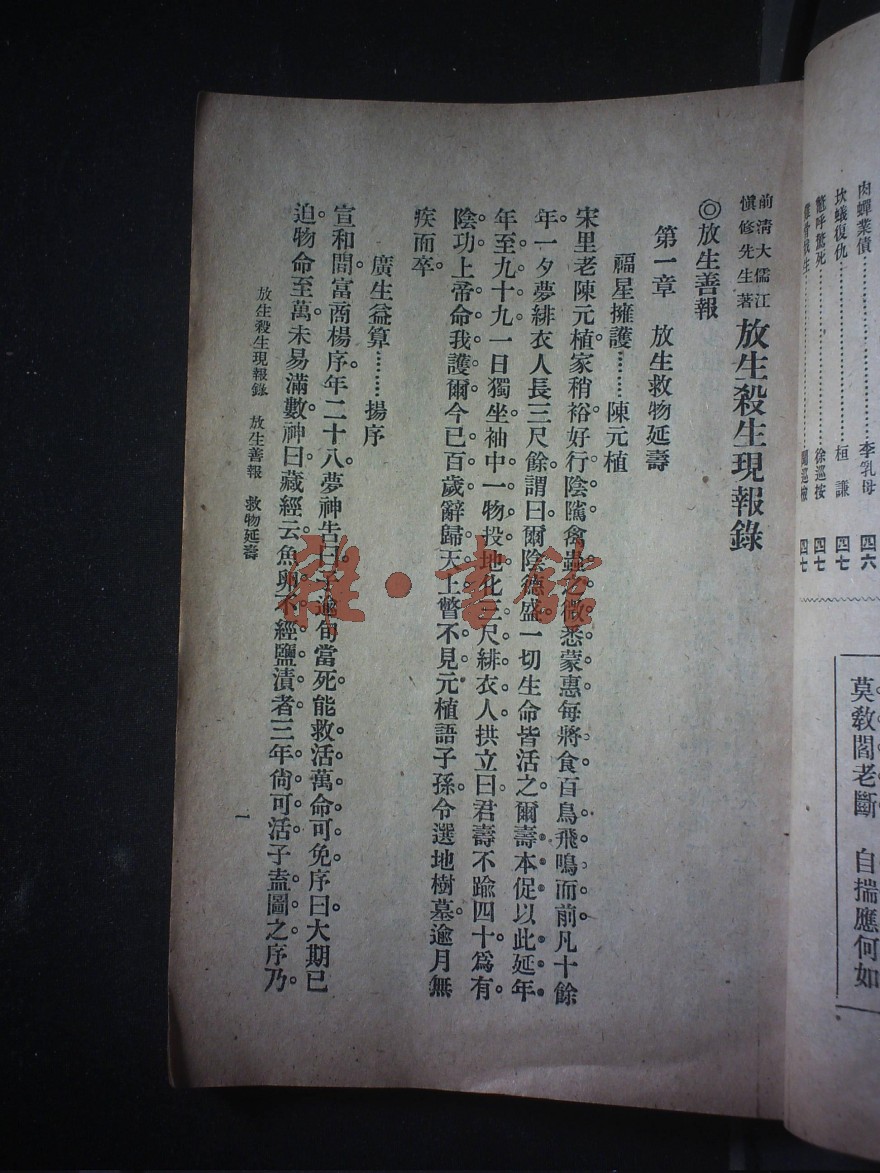 肉蟬業債 李乳母 四六
坎蟻復仇 桓謙 四七
驚死 徐巡按 四七
四七
莫敎閻老斷 自揣應何如
前清大儒江
愼修先生著 放生殺生現報錄
◎放生善報
第一章 放生救物延壽
福星擁護………陳元植
宋里老陳元植家稍裕好行陰隲禽蟲之微悉蒙惠每將食百鳥飛鳴而前凡十餘
年一夕夢緋衣人長三尺餘謂曰爾陰德盛一切生命皆活之爾壽本促以此延年
年至九十九一日獨坐袖中一物投地化三尺緋衣人拱立曰君壽不踰四十爲有
陰功上帝命我護爾今已百歲辭歸天上瞥不見元植語子孫令選地樹墓逾月無
疾而卒
廣生益算………揚序
宣和間富商楊序年二十八夢神告曰子逾旬當死能救活萬命可免序曰大期已
迫物命至萬未易滿數神曰藏經云魚卵不經鹽漬者三年尙可活子盍圖之序乃
放生殺生現報錄 放生善報 救物延壽
一
雜·書館